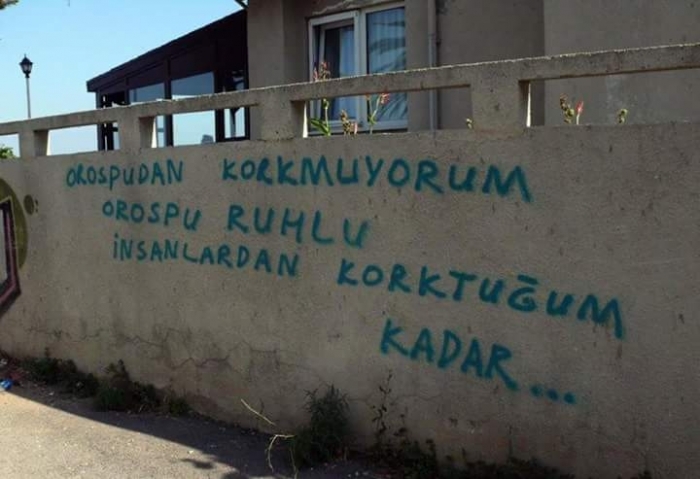 OROSPUDAN KORKMUYORUM
OROSPU RUHLU
İNSANLARDAN KORKTUĞUM
KADAR...